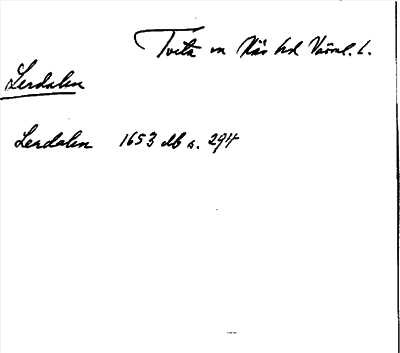 Tveta sn Näs hd Värml. l.
Lerdalen
Lerdalen 1653 db s. 294